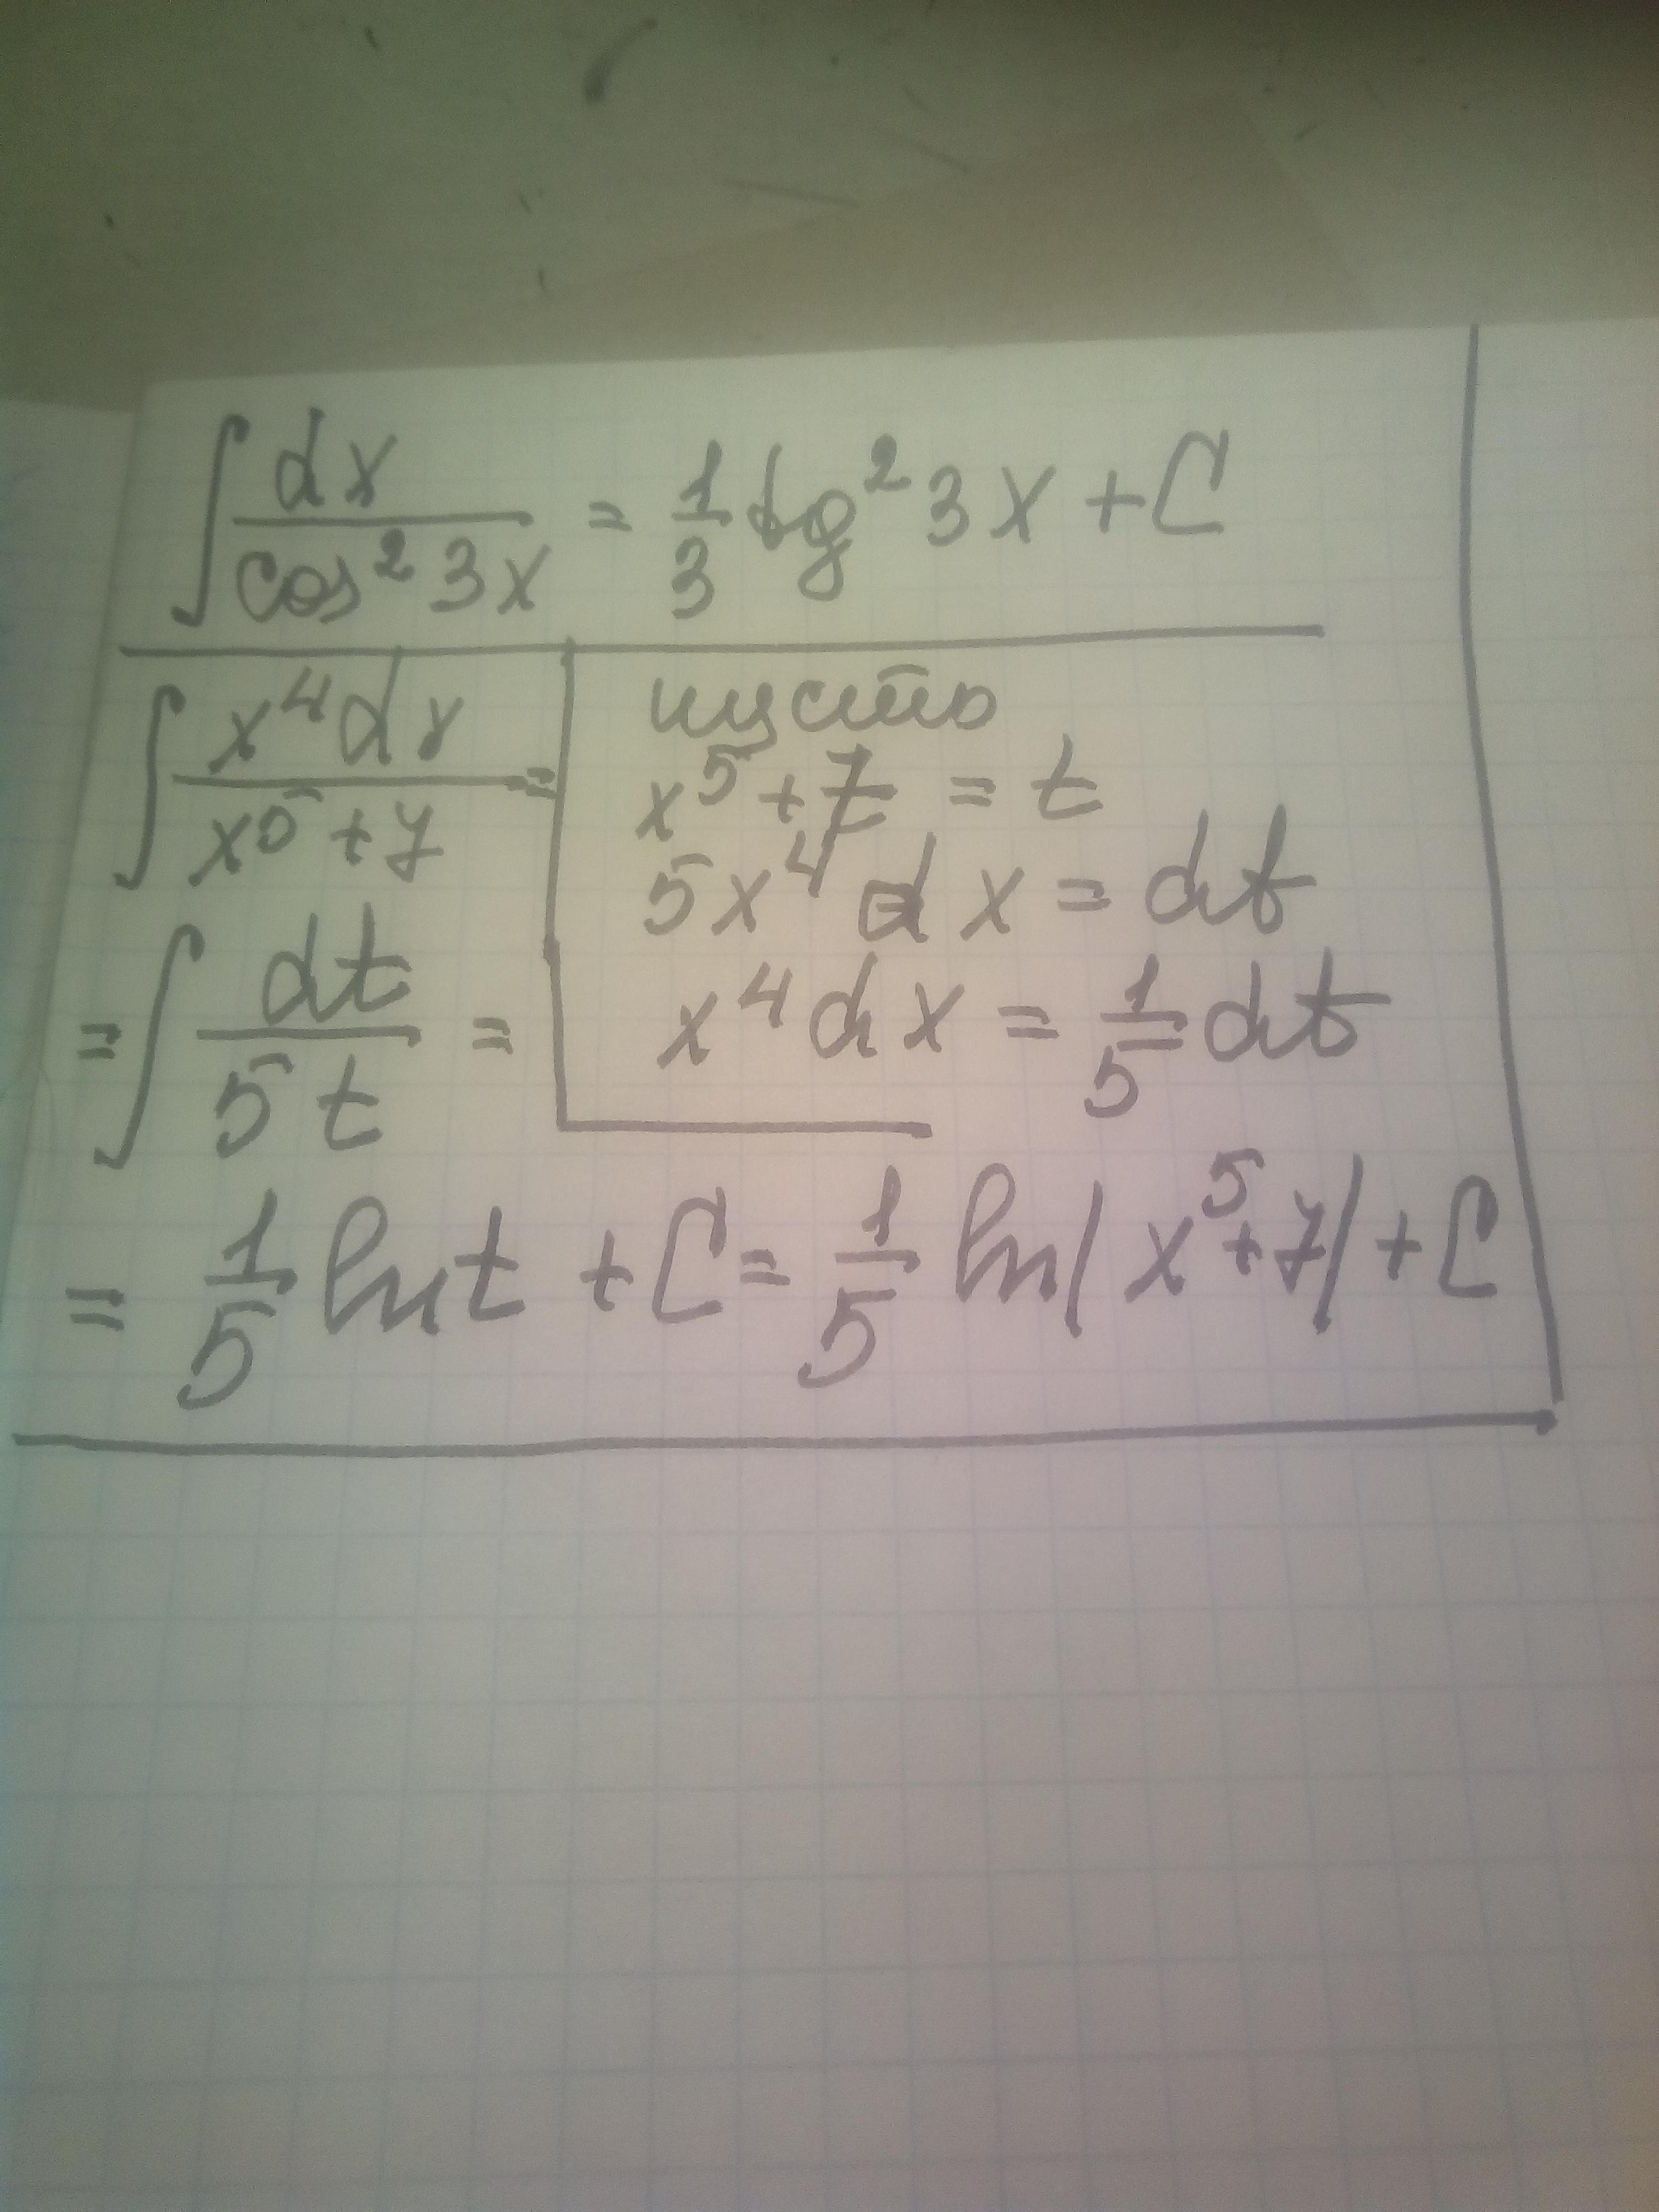 ∫ dx / cos² 3x = 1/3 tg² 3x + C
∫ x⁴dx / x⁵ + 7 =
пусть
x⁵ + 7 = t
5x⁴ dx = dt
x⁴dx = 1/5 dt
= ∫ dt / 5t =
= 1/5 ln t + C = 1/5 ln | x⁵ + 7 | + C